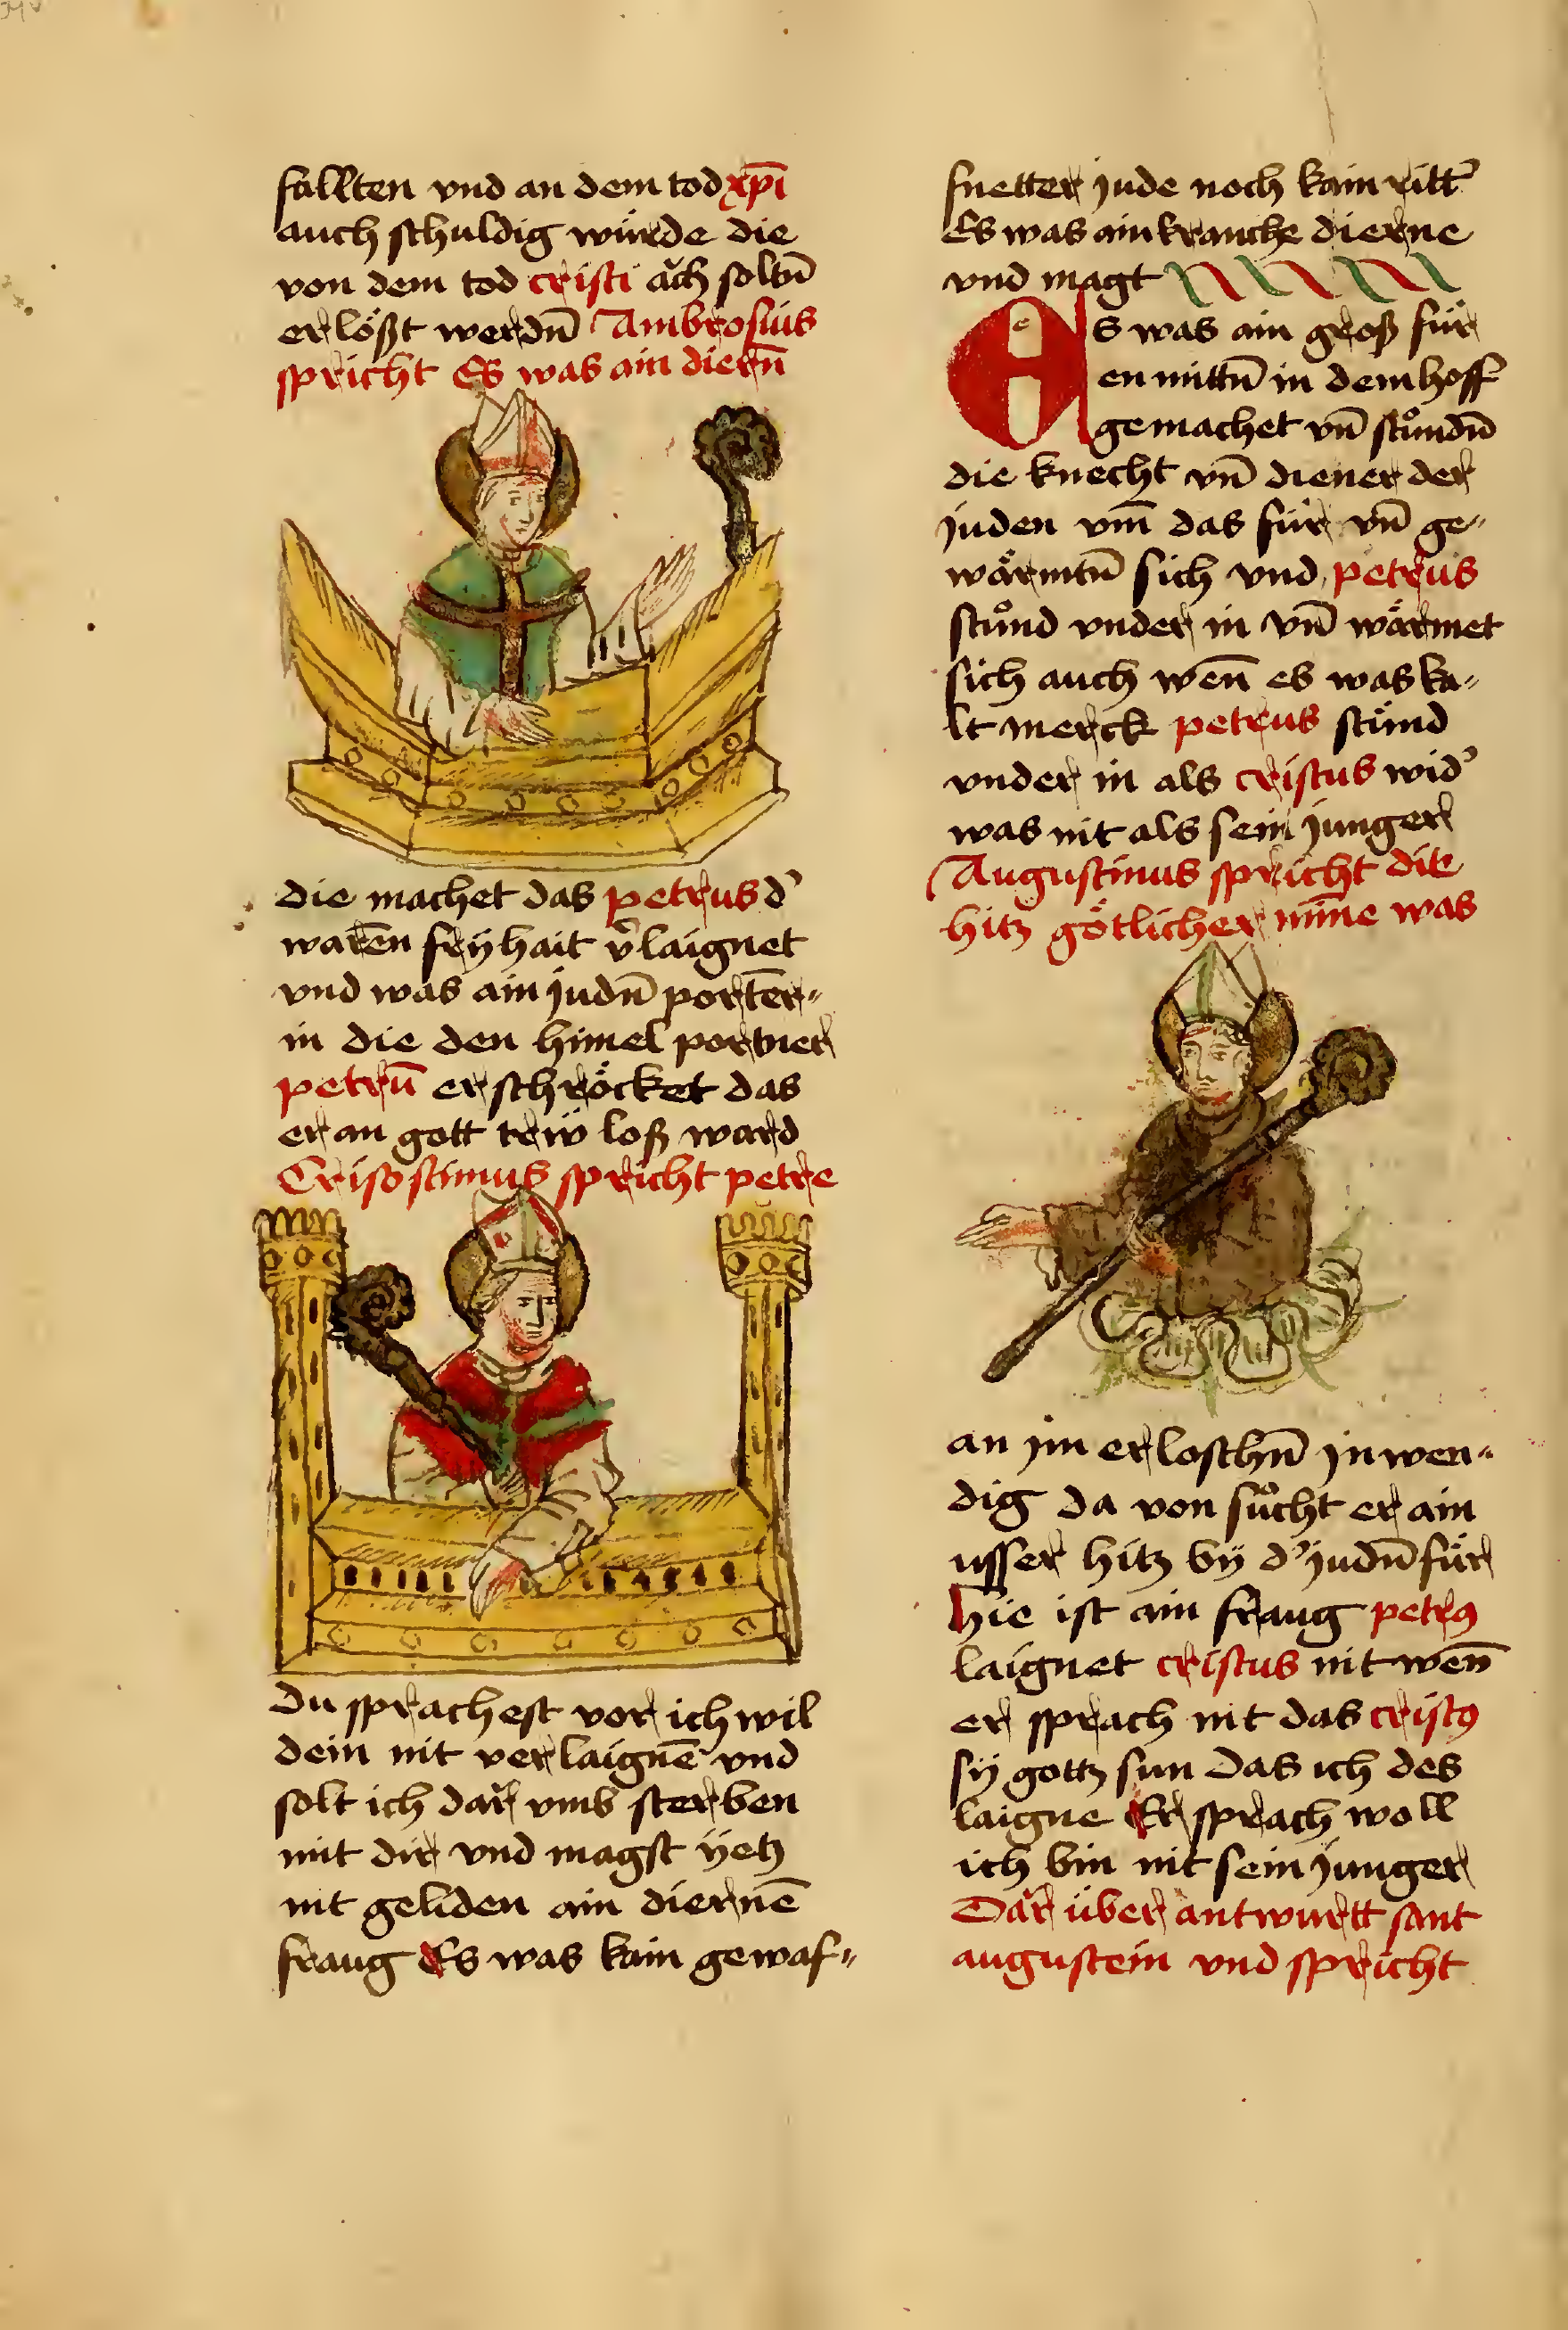 fallten vnd an dem tod xp̄i
auch schuldig würde die
von dem tod cristi ăch soltn̄
erlößt werdn̄ Ambrosius
spricht Es was ain diern̄
die machet das petrus d'
waren̄ frÿhait v̾laignet
vnd was ain judn̄ porten̄r„
in die den himel portner
petrū erschröcket das
er an gott trẅ loß ward
Crisostimus spricht petre
Du sprachest vor ich wil
dein nit verlaignē vnd
solt ich dar vmb sterben
mit dir vnd magst ÿetz
nit geliden ain diernē
fraug Es was kain gewaf„
fnetter jude noch kain ritt'
Es was ain krancke dierne
vnd magt
Es was ain groß für
en mittn̄ in dem hoff
gemachet vn̄ stůndn̄
die knecht vn̄ diener der
juden vm̄ das für vn̄ ge„
wärmtn̄ sich vnd petrus
stůnd vnder in vn̄ wärmet
sich auch wen̄ es was ka„
lt merck petrus stůnd
vnder in als cristus wid'
was nit als sein junger
Augustinus spricht die
hitz götlicher min̄e was
an jm erloschn̄ jnwen„
dig da von sůcht er ain
usser hitz bÿ d' judn̄ für
hie ist ain fraug petrꝯ
laignet cristus nit wen̄
er sprach nit das cristꝯ
sÿ gottz sun Das ich des
laigne Er sprach woll
ich bin nit sein junger
Dar über antwurtt sant
augustein vnd spricht